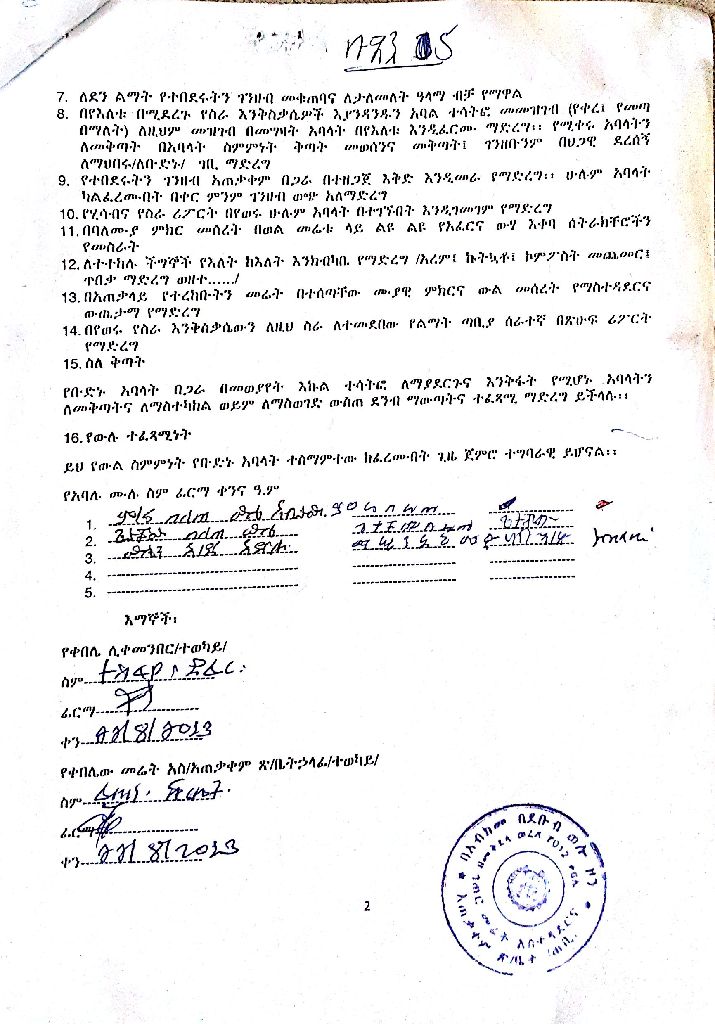 7. ለደን ልማት የተበደሩትን ገንዘብ መቁጠባና ለታለመለት ዓላማ ብቻ የማዋል
8. በየእለቱ በሚደረጉ የስራ እንቅስቃሴዎች እያንዳንዱን አባል ተሳትፎ መመዝገብ (የቀረ፤ የመጣ
በማለት) ለዚህም መዝገብ በመያዝ አባላት በየእለቱ እንዲፈርሙ ማድረግ፡፡ የሚቀሩ አባላትን
ለመቅጣት በአባላት ስምምነት ቅጣት መወሰንና መቅጣት፤ ገንዘቡንም በህጋዊ ደረሰኝ
ለማህበሩ/ለቡድኑ/ ገቢ ማድረግ
9. የተበደሩትን ገንዘብ አጠቃቀም በጋራ በተዘጋጀ እቅድ እንዲመራ የማድረግ፡፡ ሁሉም አባላት
ካልፈረሙበት በቀር ምንም ገንዘብ ወጭ አለማድረግ
10. የሂሳብና የስራ ሪፖርት በየወሩ ሁሉም አባላት በተገኙበት እንዲገመገም የማድረግ
11. በባለሙያ ምክር መሰረት በወል መሬቱ ላይ ልዩ ልዩ የአፈርና ውሃ እቀባ ስትራክቸሮችን
የመስራት
12. ለተተከሉ ችግኞች የእለት ከእለት እንክብካቤ የማድረግ /አረም፤ ኩትኳቶ፤ ኮምፖስት መጨመር፤
ጥበቃ ማድረግ ወዘተ....../
13. በአጠቃላይ የተረከቡትን መሬት በተሰጣቸው ሙያዊ ምክርና ውል መሰረት የማስተዳደርና
ውጤታማ የማድረግ
14. በየወሩ የስራ እንቅስቃሴውን ለዚህ ስራ ለተመደበው የልማት ጣቢያ ሰራተኛ በጽሁፍ ሪፖርት
የማድረግ
15. ስለ ቅጣት
የቡድኑ አባላት በጋራ በመወያየት እኩል ተሳትፎ ለማያደርጉና እንቅፋት የሚሆኑ አባላትን
ለመቅጣትና ለማስተካከል ወይም ለማስወገድ ውስጠ ደንብ ማውጣትና ተፈጻሚ ማድረግ ይችላሉ፡፡
16. የውሉ ተፈጻሚነት
ይህ የውል ስምምነት የቡድኑ አባላት ተስማምተው ከፈረሙበት ጊዜ ጀምሮ ተግባራዊ ይሆናል፡፡
የአባሉ ሙሉ ስም ፊርማ ቀንና ዓ.ም
1.
2.
3.
4.
5.
እማኞች፡
የቀበሌ ሊቀመንበር/ተወካይ/
ስም
ፊርማ
ቀን 22/8/2013
የቀበሌው መሬት አስ/አጠቃቀም ጽ/ቤትኃላፊ/ተወካይ/
ስም
ፊርማ
ቀን 22/8/2013
2